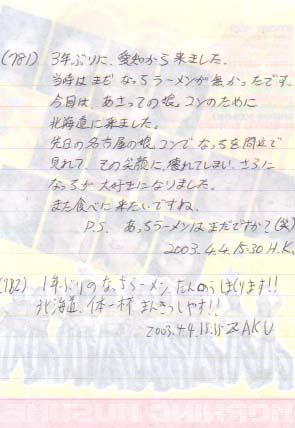 (781) 3年ぶりに、愛知から来ました。
当時はまだ なっちラーメンが無かったです。
今回は、あさっての娘。コンのために
北海道に来ました。
先日の名古屋の娘。コンで なっちを間近で
見れて、その笑顔に壊れてしまい、さらに
なっちが大好きになりました。
また食べに来たいですね。
P.S. あっちラーメンはまだですか?(笑)
2003.4.4.15:30 H.K.
(782) 1年ぶりのなっちラーメン、たんのうしまくります!!
北海道、体一杯まんきつしやす!!
2003.4.4 15:35 ZAKU
MORNING MUSUME